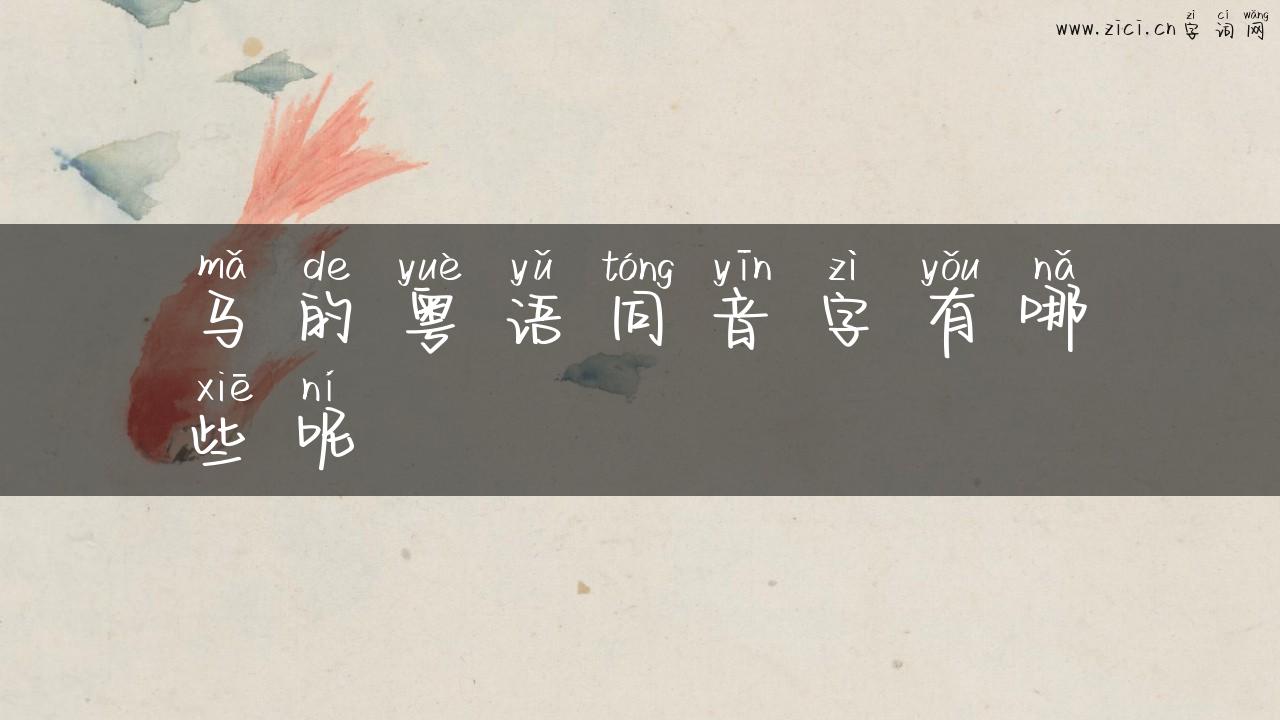 zì cí wǎng
www.zici.cn 字词网
mǎ de yuè yǔ tóng yīn zì yǒu nǎ
马的粤语同音字有哪
xiē ní
些呢